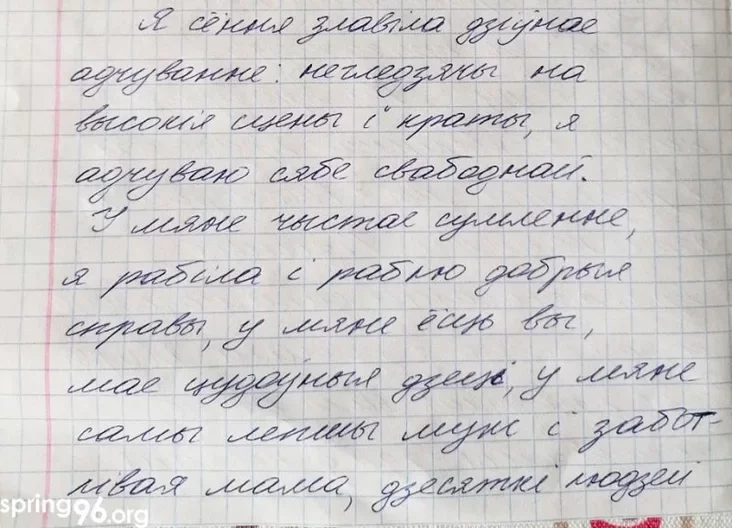 Я сёння злавіла дзіўнае
адчуванне: негледзячы на
высокія сцены і краты, я
адчуваю сябе свабоднай.
У мяне чыстае сумленне,
я рабіла і раблю добрыя
справы, у мяне ёсць вы,
мае цудоўныя дзеці, у мяне
самы лепшы муж і забот-
лівая мама, дзесяткі людзей
spring96.org